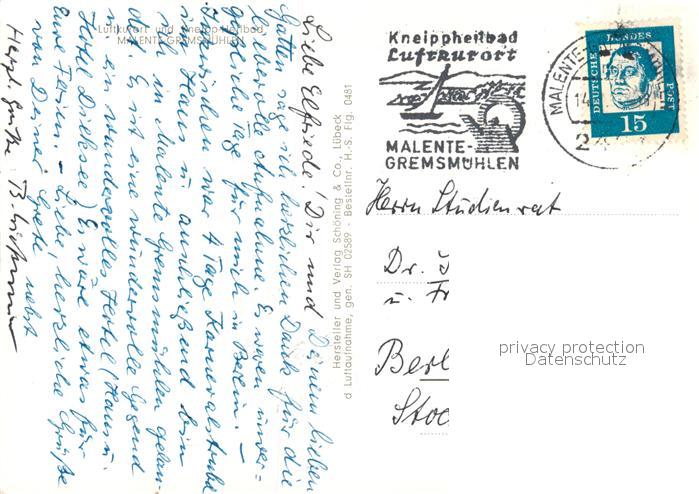 Luftkurort und Kneippheilbad
MALENTE-GREMSMÜHLEN
Liebe Elfriede! Dir und Deinem lieben
Gatten sage ich herzlichen Dank für die
liebevolle Aufnahme. Es waren
Tage für mich in Berlin. –
war 4 Tage
im Harz u. anschließend bin
ich in Malente Gremsmühlen gelan-
det. Es ist eine wundervolle Gegend
u. ein wundervolles Hotel (Haus u.
Hotel Dieksee) Es wäre etwas für
Eure Ferien. – Liebe, herzliche Grüße
von Deiner Grete nebst
Herzl. Grüße B.
Hersteller und Verlag Schöning & Co., Lübeck
d Luftaufnahme, gen. SH 02589 · Bestellnr. H.-S. Fig. 0481
Kneippheilbad
Luftkurort
MALENTE-
GREMSMÜHLEN
MALENTE-
14
24
DEUTSCHE BUNDES POST
15
Herrn Studienrat
Dr.
u. Fr
Berl
Stoc
privacy protection
Datenschutz